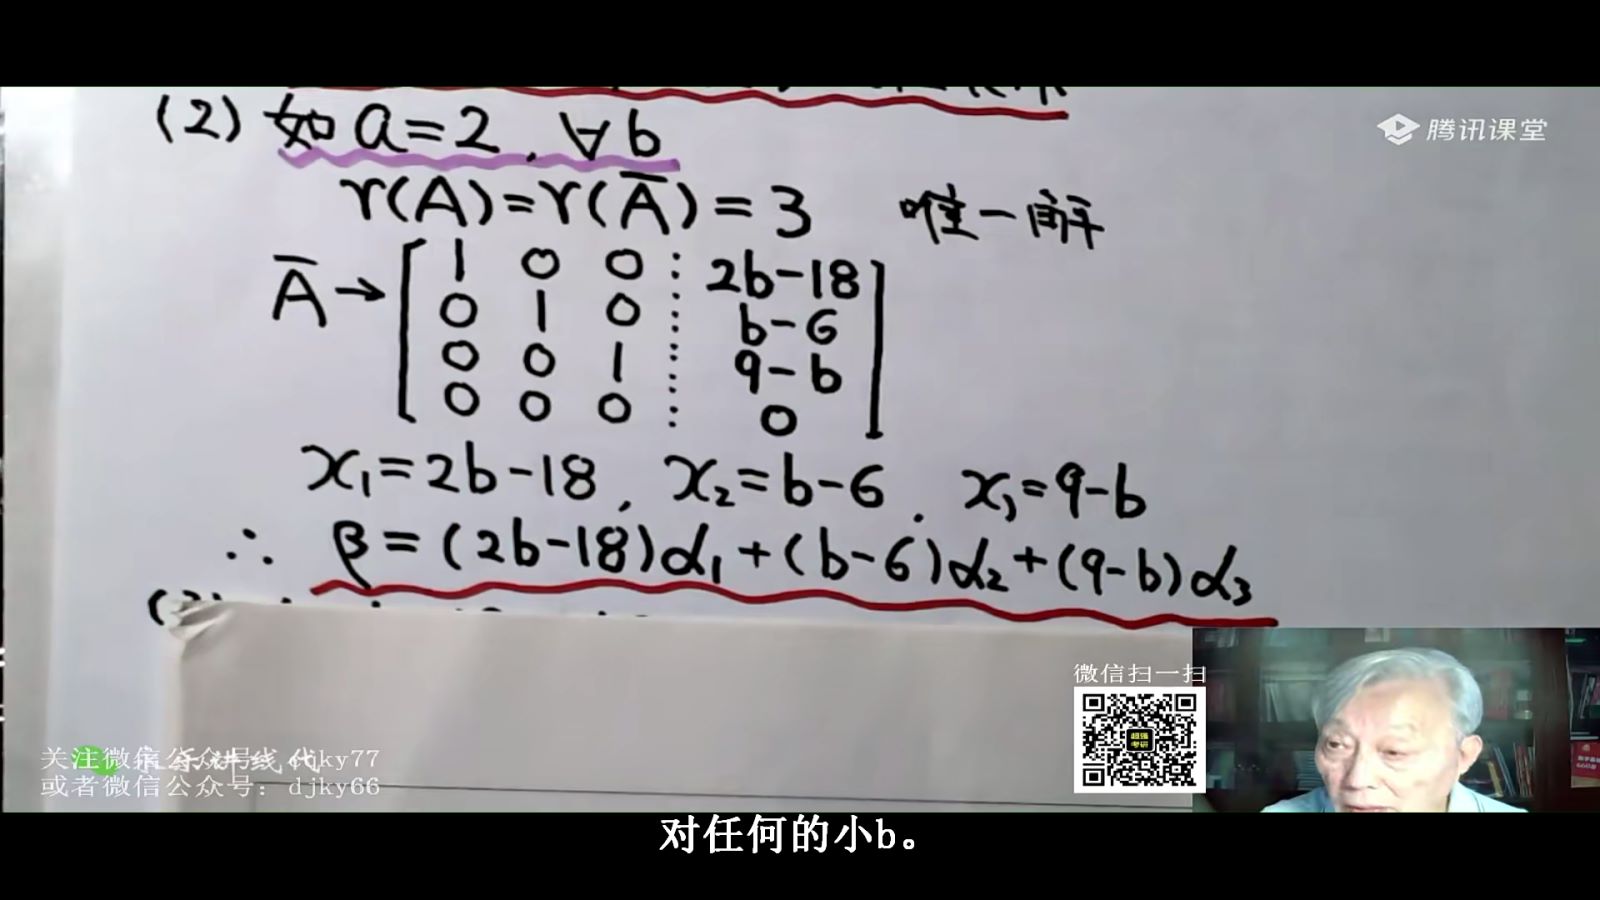 (2) 如 a=2, ∀b
腾讯课堂
r(A)=r(Ā)=3 唯一解
Ā→[1 0 0 ⋮ 2b-18
0 1 0 ⋮ b-6
0 0 1 ⋮ 9-b
0 0 0 ⋮ 0]
x₁=2b-18, x₂=b-6. x₃=9-b
∴ β=(2b-18)α₁+(b-6)α₂+(9-b)α₃
微信扫一扫
超强
考研
关注微信公众号: djky77
或者微信公众号: djky66
对任何的小b。